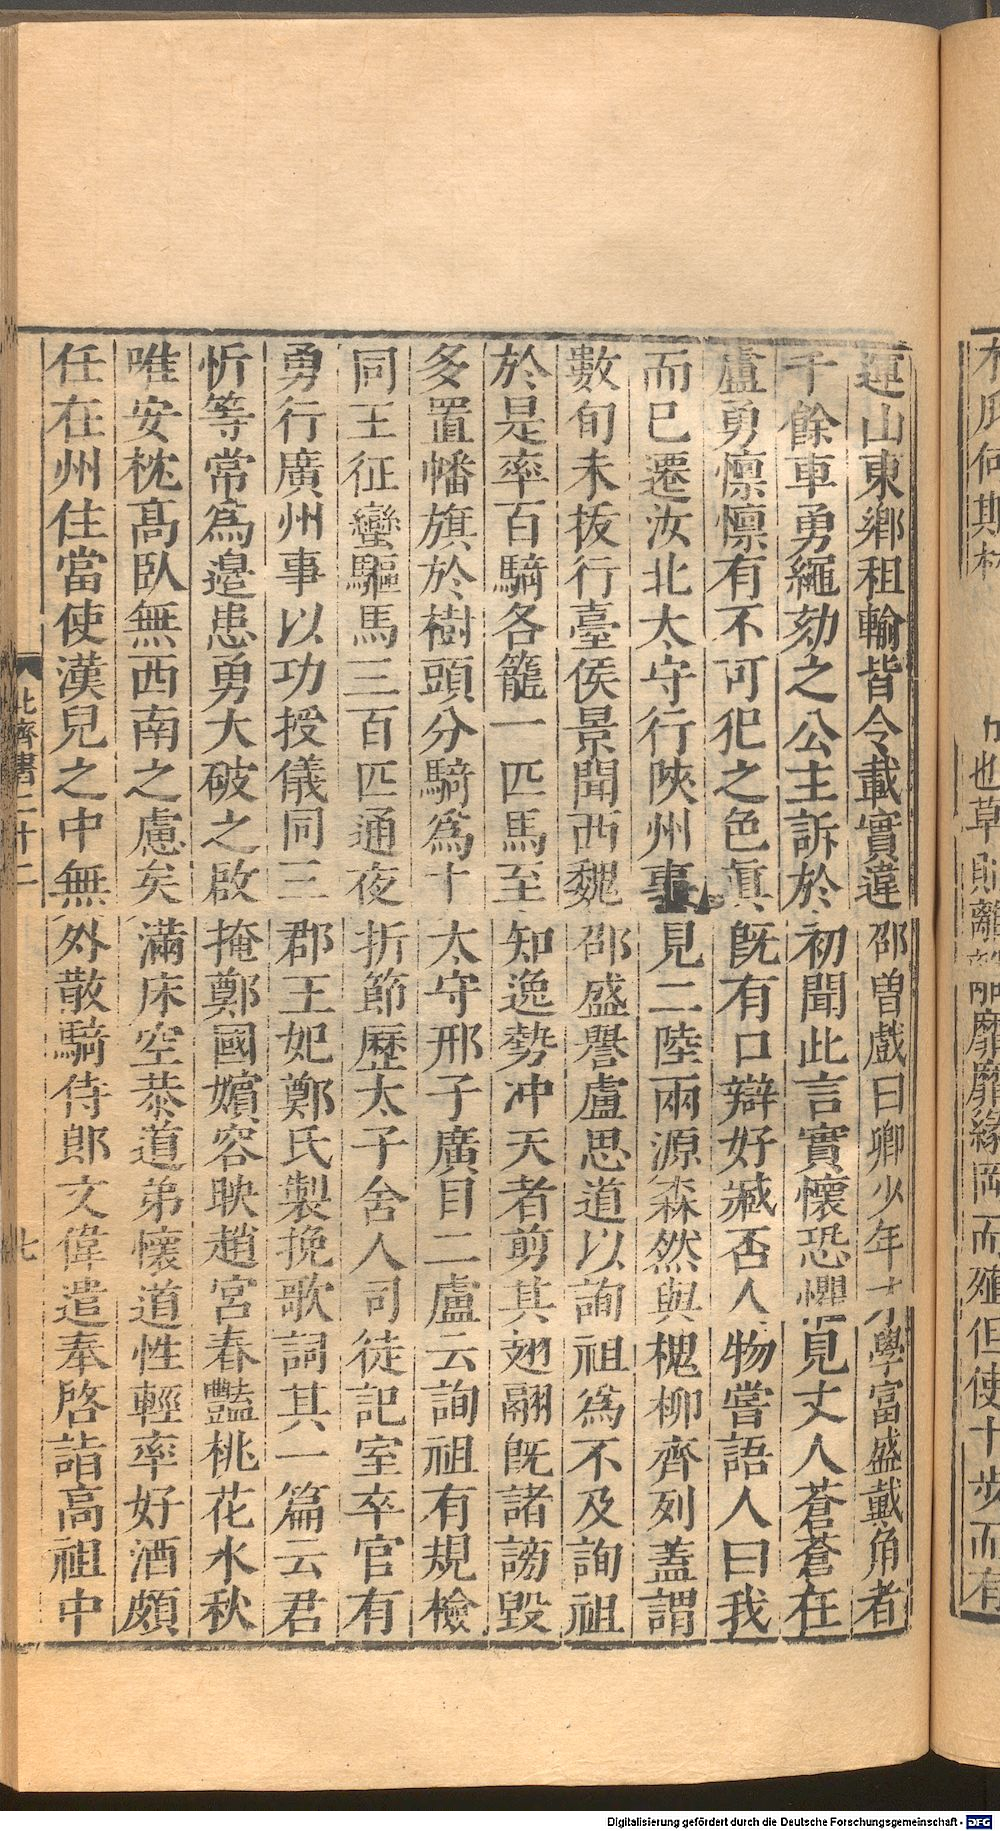 也草 靡靡緣岡而殖但使十步而有
運山東鄉租輸皆令載實違邵曾戲曰卿少年才學富盛戴角者
千餘車勇繩劾之公主訴於初聞此言實懷恐懼見丈人蒼蒼在
盧勇懍懍有不可犯之色眞旣有口辯好臧否人物嘗語人曰我
而巳遷汝北太守行陝州事見二陸兩源森然與槐柳齊列蓋謂
數旬未拔行臺侯景聞西魏邵盛譽盧思道以詢祖為不及詢祖
於是率百騎各籠一匹馬至知逸勢冲天者剪其翅翮旣諸謗毀
多置幡旗於樹頭分騎爲十太守邢子廣目二盧云詢祖有規檢
同王征蠻驅馬三百匹通夜折節歷太子舍人司徒記室卒官有
勇行廣州事以功授儀同三郡王妃鄭氏製挽歌詞其一篇云君
忻等常爲邊患勇大破之啟掩鄭國嬪容映趙宮春豔桃花水秋
唯安枕髙臥無西南之慮矣滿床空恭道弟懷道性輕率好酒頗
任在州住當使漢兒之中無外散騎侍郎文偉遣奉啓詣高祖中
北齊書二十二
七
Digitalisierung gefördert durch die Deutsche Forschungsgemeinschaft - DFG